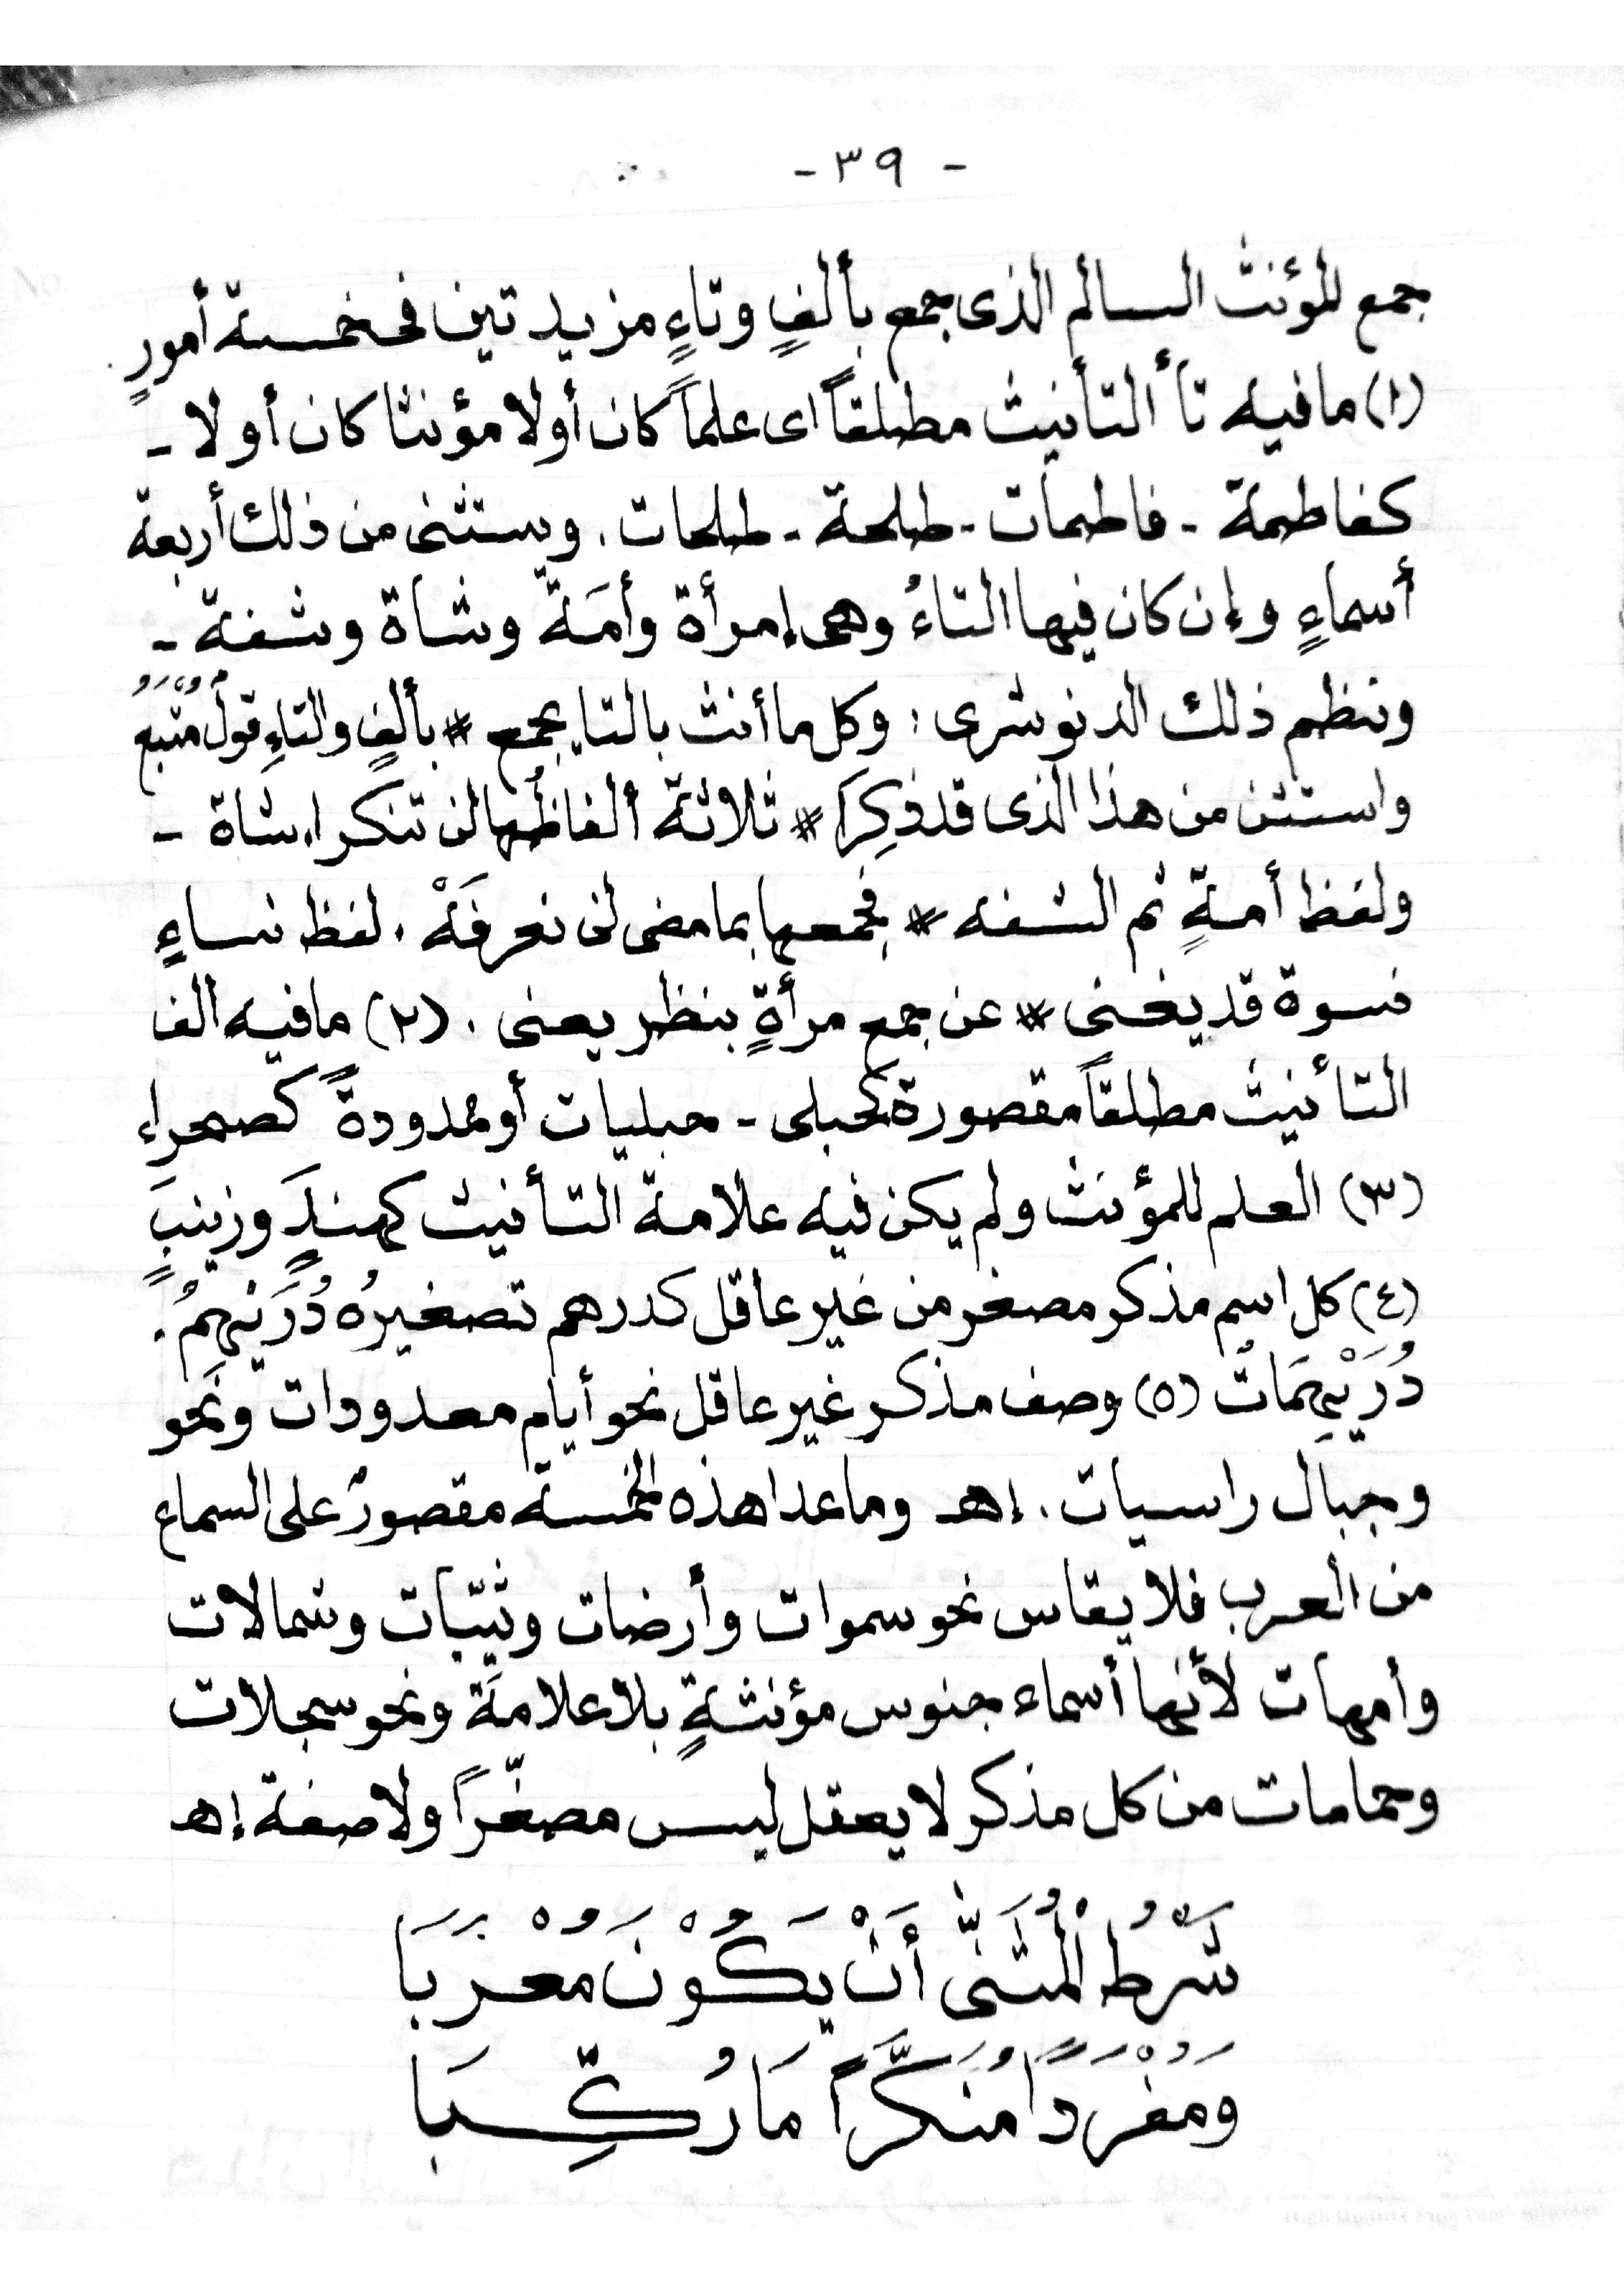 - ٣٩ -
جمع للمؤنث السالم الذى جمع بألفٍ وتاءٍ مزيدتين فى خمسة أمورٍ
(١) ما فيه تأ التأنيث مطلقاً اى علماً كان أولا مؤنثا كان أولا -
كفاطمة - فاطمات - طلحة - طلحات . ويستثنى من ذلك أربعة
أسماءٍ وإن كان فيها التاءُ وهى إمرأة وأمَة وشاة وشفة -
ونظم ذلك الدنوشرى : وكل ما أنث بالتا يجمع * بألفٍ والتاءِ قولٌ مُتَّبَعُ
واستثن من هذا الذى قد ذُكِرَا * ثلاثة ألفاظُها لن تنكرا . شاة -
ولفظ أمةٍ ثم الشفه * فجمعها بما مضى لن نعرفَهْ . لفظ نساءٍ
نسوة قد يغنى * عن جمع مرأةٍ بنظر يعنى . (٢) ما فيه الف
التأنيث مطلقاً مقصورة كحبلى - حبليات أو ممدودةً كصحراء
(٣) العلم للمؤنث ولم يكن فيه علامة التأنيث كهندٍ وزينبٍ
(٤) كل اسم مذكر مصغر من غير عاقل كدرهم تصغيرُه دُرَيْهِمٌ .
دُرَيْهِمَاتٌ (٥) وصف مذكر غير عاقل نحو أيام معدودات ونحو
وجبال راسيات . إهـ وما عدا هذه الخمسة مقصورٌ على السماع
من العرب فلا يقاس نحو سموات وأرضات وثيّبات وشمالات
وأمهات لأنها أسماء جنوس مؤنثةٍ بلا علامة ونحو سجلات
وحمامات من كل مذكر لا يعقل ليس مصغّراً ولا صفة إهـ
شَرْطُ الْمُثَنَّى أَنْ يَكُوْنَ مُعْرَبَا
وَمُفْرَدًا مُنَكَّرًا مَا رُكِّبَا